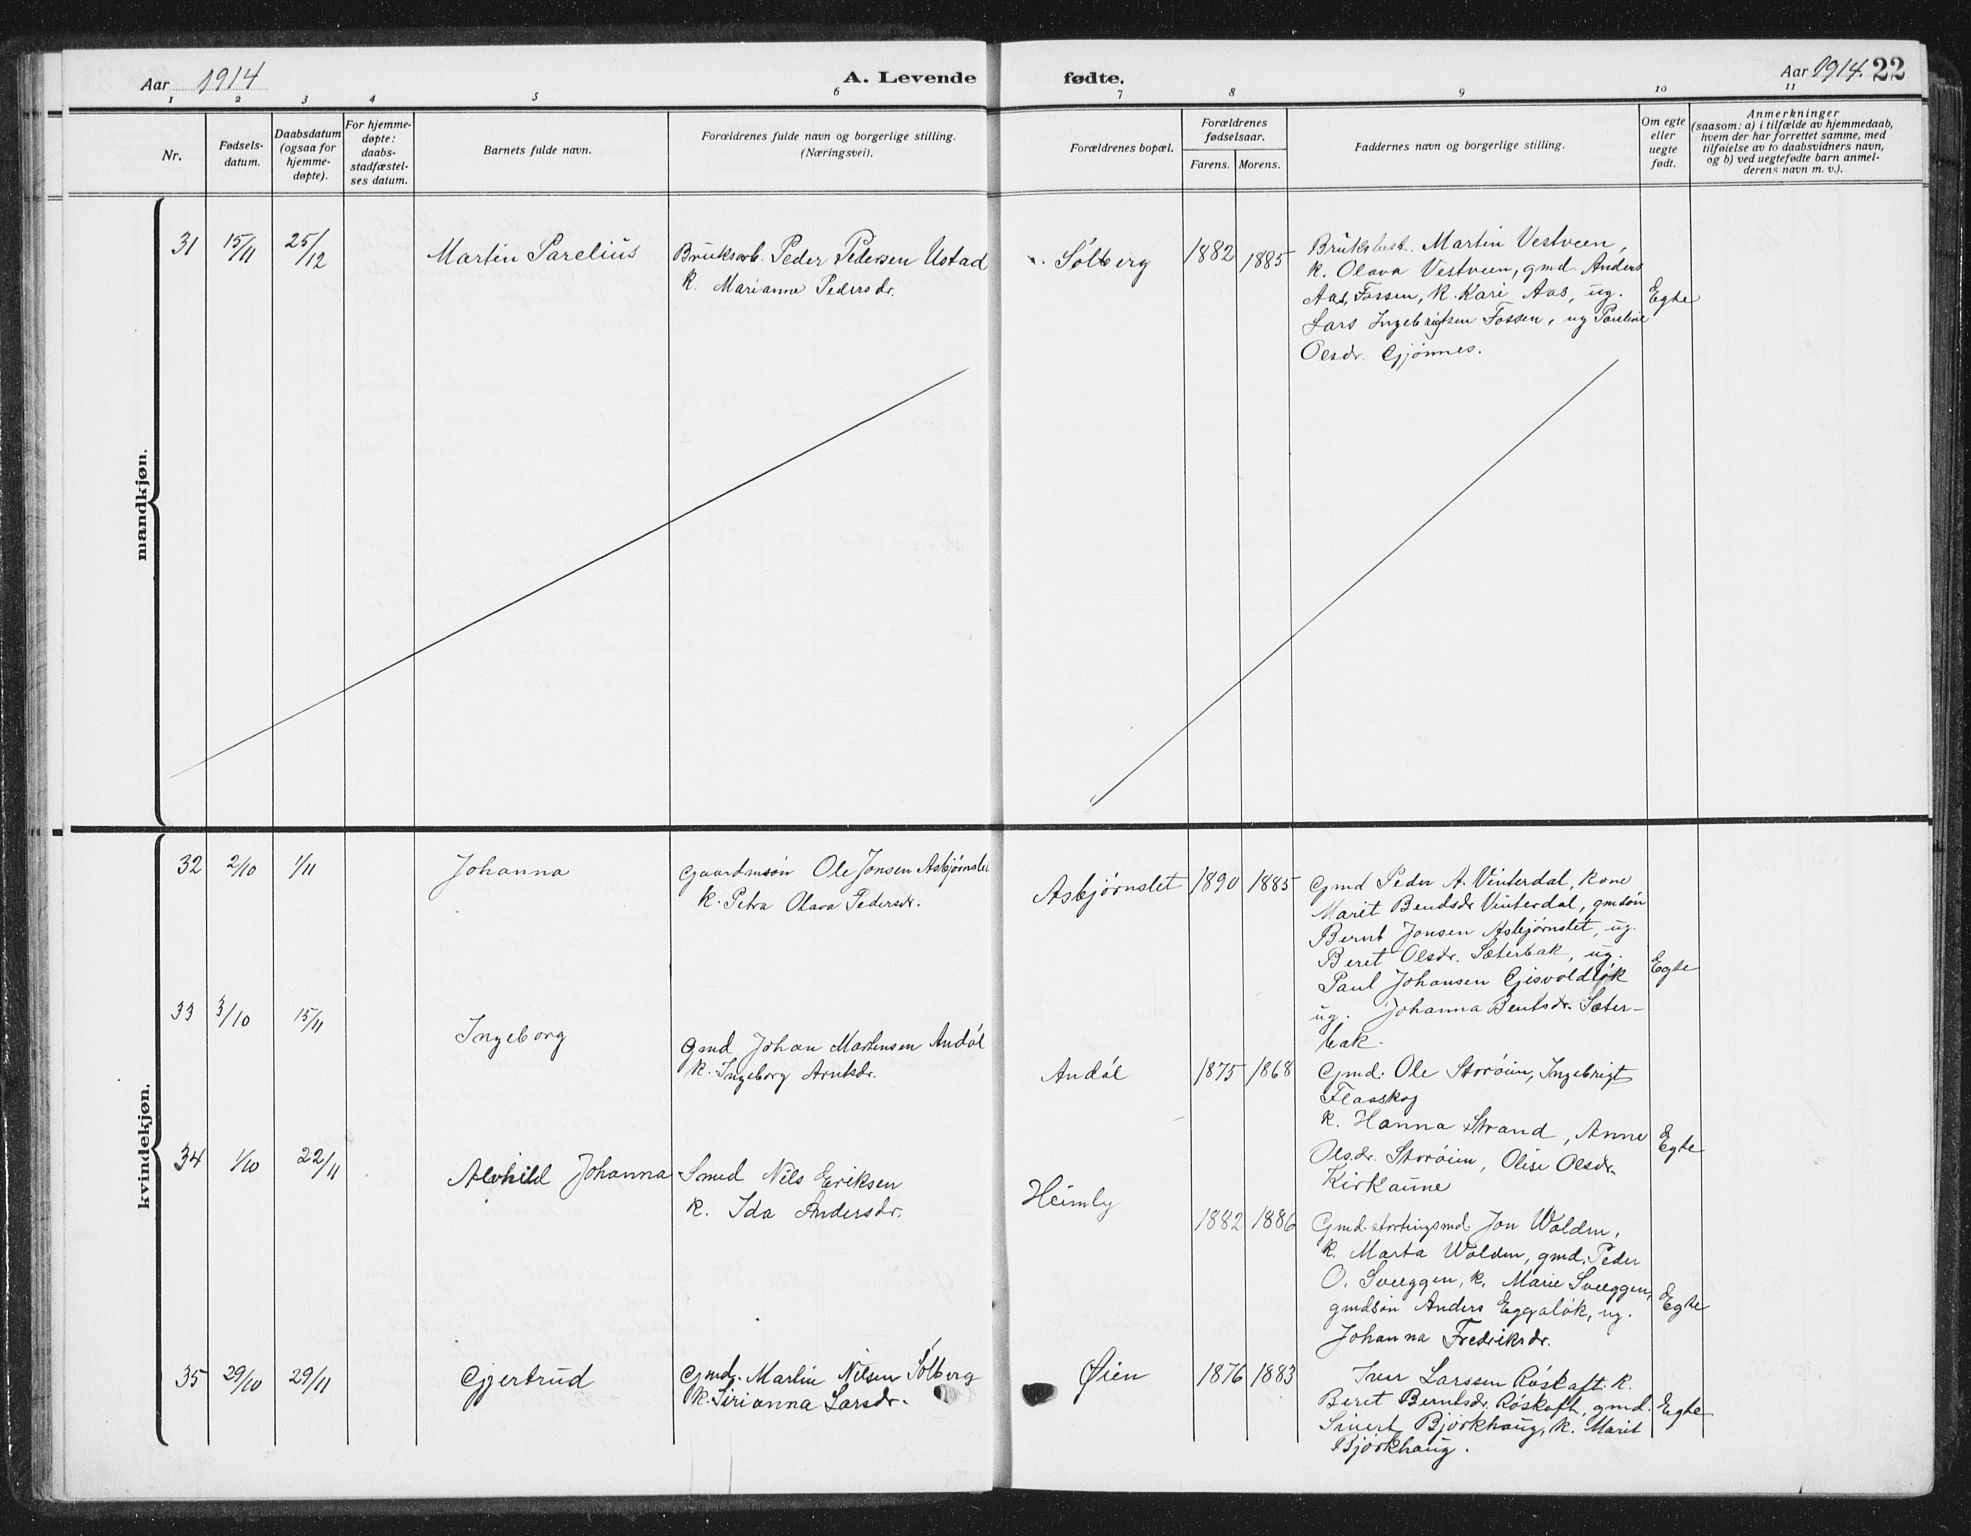 Aar 1914
A. Levende
fødte.
Aar 1914. 22
1 2 3 4 5 6 7 8 9 10 11
Nr.
Fødsels-
datum.
Daabsdatum
(ogsaa for
hjemme-
døpte).
For hjemme-
døpte:
daabs-
stadfæstel-
ses datum.
Barnets fulde navn.
Forældrenes fulde navn og borgerlige stilling.
(Næringsvei).
Forældrenes bopæl.
Forældrenes
fødselsaar.
Farens. Morens.
Faddernes navn og borgerlige stilling.
Om egte
eller
uegte
født.
Anmerkninger
(saasom: a) i tilfælde av hjemmedaab,
hvem der har forrettet samme, med
tilføielse av to daabsvidners navn,
og b) ved uegtefødte barn anmel-
derens navn m. v.).
mandkjøn.
31 15/11 25/12
Martin Parelius
Bruksarb. Peder Pedersen Ustad
k. Marianne Pedersdr.
Solberg
1882 1885
Bruksbest. Martin Vestveen,
k. Olava Vestveen, gmd. Anders
Aas, Fossen, k. Kari Aas, ug.
Lars Ingebrigtsen Fossen, ug Pauline
Olsdr. Gjønnes.
Egte
kvindekjøn.
32 2/10 1/11
Johanna
Gaardmsøn Ole Jonsen Asbjørnslet
k. Petra Olava Pedersdr.
Asbjørnslet
1890 1885
Gmd Peder A. Vinterdal, kone
Marit Bendsdr Vinterdal, gmsøn
Bernt Jonsen Asbjørnslet, ug.
Beret Olsdr. Sæterbak, ug.
Paul Johansen Gisvoldløk
ug. Johanna Bentsdr. Sæter-
bak.
Egte
33 3/10 15/11
Ingeborg
Gmd Johan Martinsen Andøl
k. Ingeborg Arntsdr.
Andøl
1875 1868
Gmd. Ole Storøien, Ingebrigt
Flaaskog
k. Hanna Strand, Anne
Olsdr. Storøien, Olise Olsdr.
Kirkaune
Egte
34 1/10 22/11
Alvhild Johanna
Smed Nils Eriksen
k. Ida Andersdr.
Heimly
1882 1886
Gmd. stortingsmd. Jon Wolden,
k. Marta Wolden, gmd. Peder
O. Sveeggen, k. Marie Sveeggen,
gmdsøn Anders Eggaløk, ug.
Johanna Fredriksdr.
Egte
35 29/10 29/11
Gjertrud
Gmd. Martin Nilsen Solberg
k. Sirianna Larsdr.
Øien
1876 1883
Iver Larssen Røskaft. k.
Beret Berntsdr. Røskaft, gmd.
Sivert Bjørkhaug, k. Marit
Bjørkhaug.
Egte